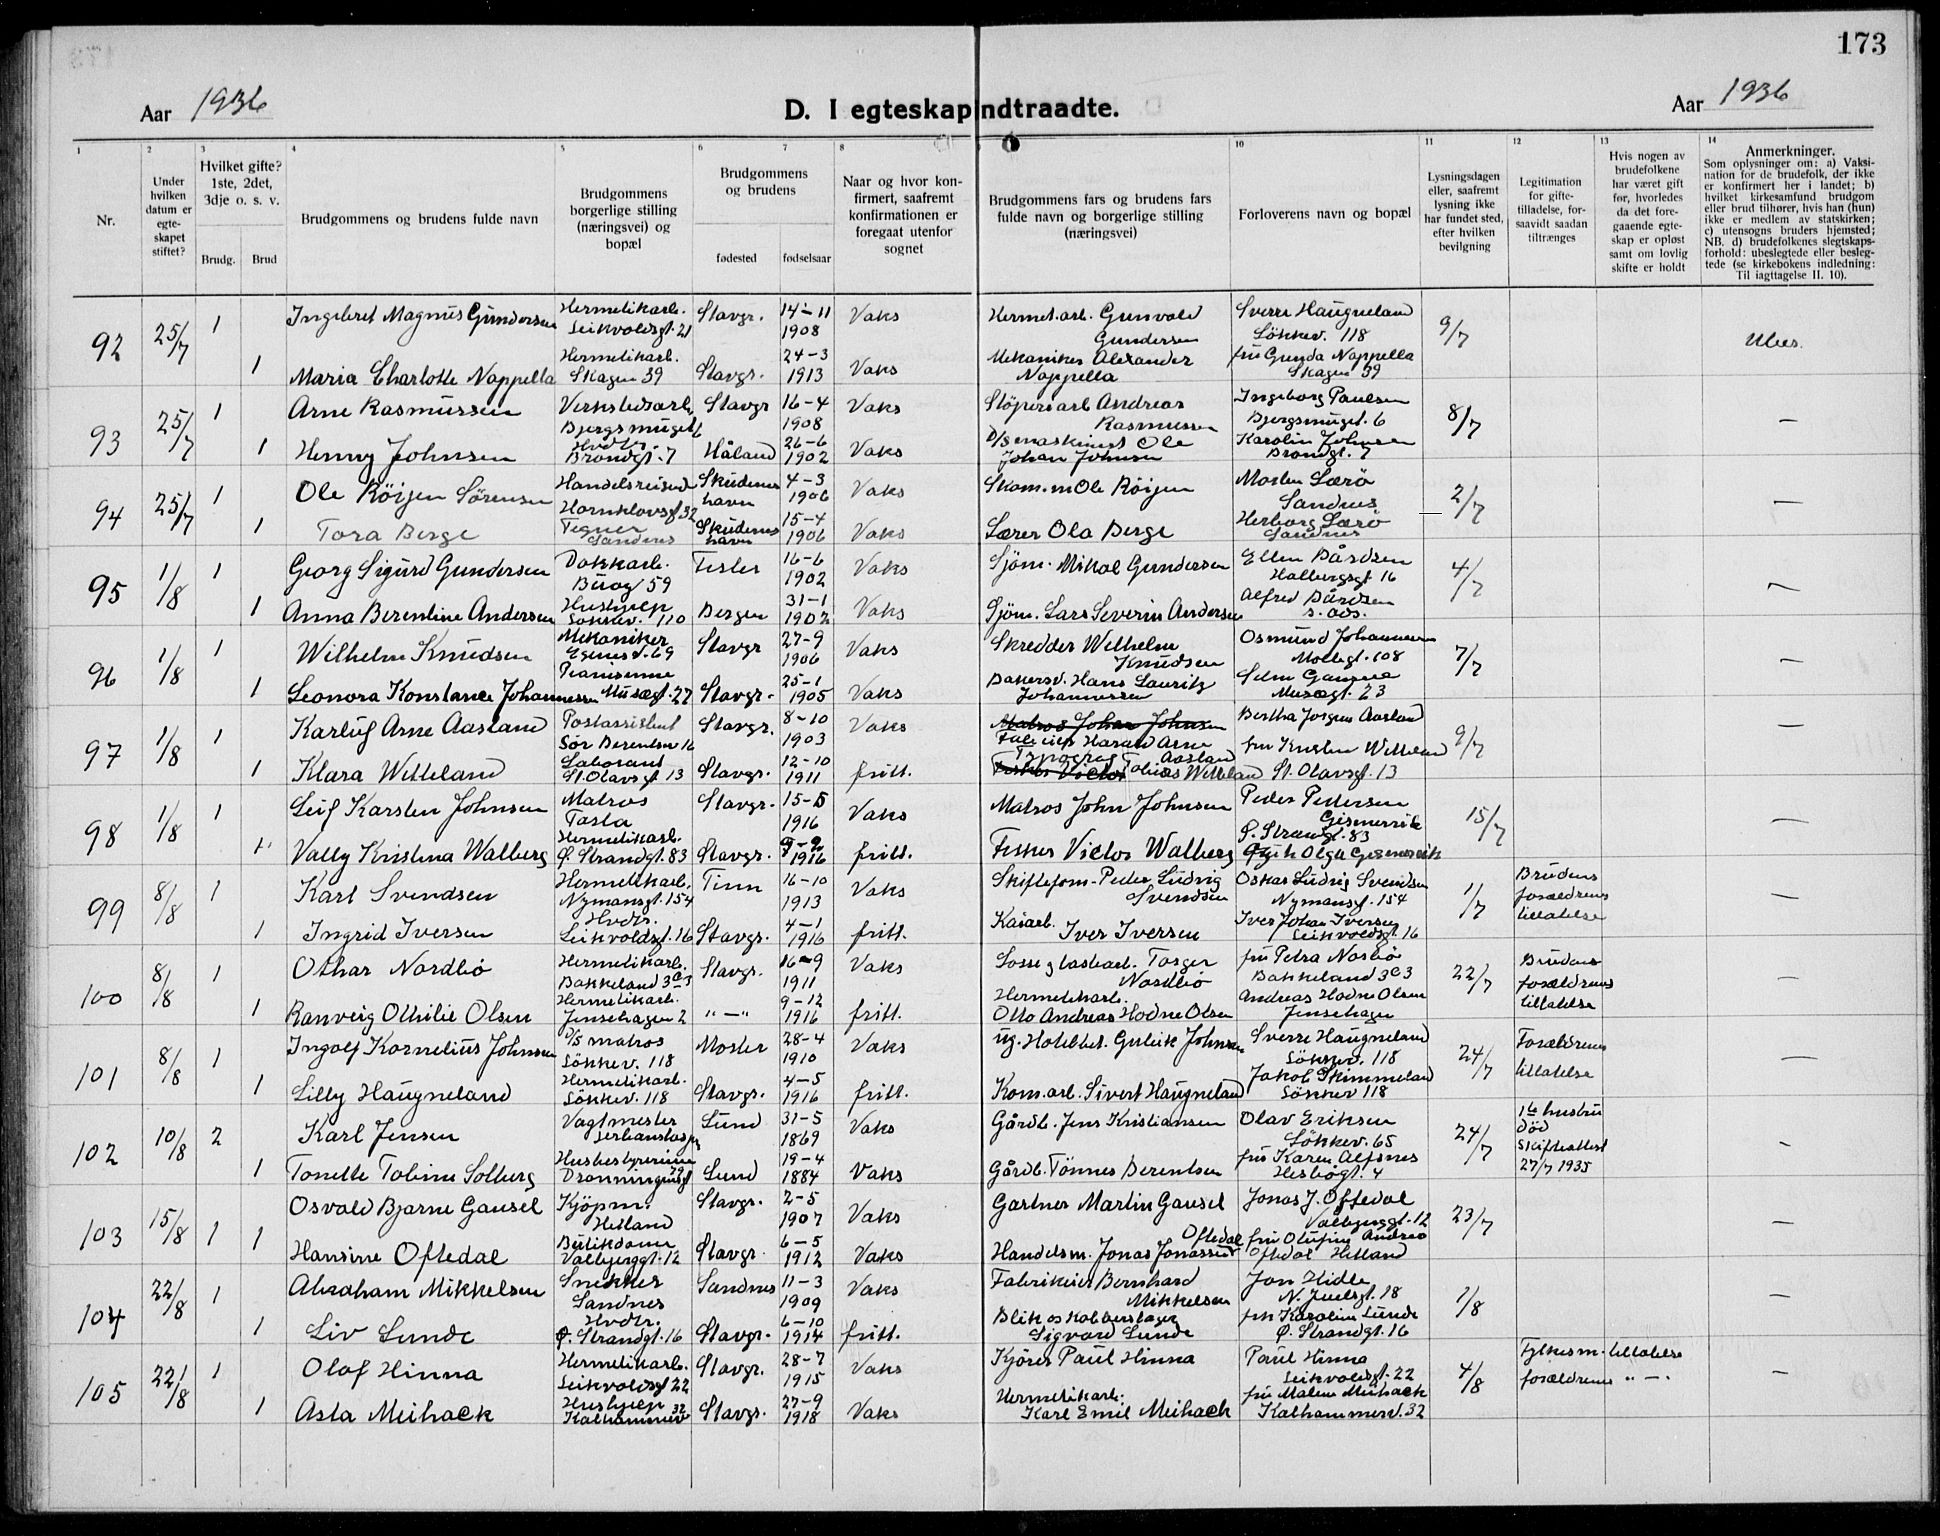 173
Aar 1936
D. I egteskap indtraadte.
Aar 1936
1 2 3 4 5 6 7 8 10 11 12 13 14
Nr.
Under hvilken datum er egte-skapet stiftet?
Hvilket gifte? 1ste, 2det, 3dje o. s. v.
Brudg. Brud
Brudgommens og brudens fulde navn
Brudgommens borgerlige stilling (næringsvei) og bopæl
Brudgommens og brudens
fødested fødselsaar
Naar og hvor kon-firmert, saafremt konfirmationen er foregaat utenfor sognet
Brudgommens fars og brudens fars fulde navn og borgerlige stilling (næringsvei)
Forloverens navn og bopæl
Lysningsdagen eller, saafremt lysning ikke har fundet sted, efter hvilken bevilgning
Legitimation for gifte-tilladelse, for-saavidt saadan tiltrænges
Hvis nogen av brudefolkene har været gift før, hvorledes da det fore-gaaende egte-skap er opløst samt om lovlig skifte er holdt
Anmerkninger.
Som oplysninger om: a) Vaksi-nation for de brudefolk, der ikke er konfirmert her i landet; b) hvilket kirkesamfund brudgom eller brud tilhører, hvis han (hun) ikke er medlem av statskirken; c) utensogns bruders hjemsted; NB. d) brudefolkenes slegtskaps-forhold: ubeslegtede eller besleg-tede (se kirkebokens indledning: Til iagttagelse II. 10).
92 25/7 1 Ingebret Magnus Gundersen Hermetikarb. Leikvoldsgt. 21 Stavgr. 14-11 1908 Vaks Hermet.arb. Gunvald Gundersen Sverre Haugneland Lökkev. 118 9/7 Ubes.
1 Maria Charlotte Nappella Hermetikarb. Skagen 39 Stavgr. 24-3 1913 Vaks Mekaniker Alexander Nappella fru Gunda Nappella Skagen 39
93 25/7 1 Arne Rasmussen Verkstedsarb. Bjergsmuget 6 Stavgr 16-4 1908 Vaks Stöperiarb Andreas Rasmussen Ingeborg Paulsen Bjergsmuget. 6 8/7 —
1 Henny Johnsen Hvdtr. Brandgt. 7 Håland 26-6 1902 Vaks D/s maskinist Ole Johan Johnsen Karolin Johnsen Brandgt. 7
94 25/7 1 Ole Röijen Sörensen Handelsreisend Hornklovsgt 32 Skudenes havn 4-3 1906 Vaks Skom.m Ole Röijen Morten Særö Sandnes 2/7 —
1 Tora Berge Tegner Sandnes Skudenes havn 15-4 1906 Vaks Lærer Ola Berge Herborg Særö Sandnes
95 1/8 1 Georg Sigurd Gundersen Dokkarb. Buøg 59 16-6 1902 Vaks Sjöm. Mikal Gundersen Ellen Bårdsen Holbergsgt 16 4/7 —
1 Anna Berentine Andersen Hushjelp Lökkev. 110 Bergen 31-1 1902 Vaks Sjöm. Lars Severin Andersen Alfred Bårdsen s. ads.
96 1/8 1 Wilhelm Knudsen Mekaniker Egenesv. 69 Stavgr 27-9 1906 Vaks Skredder Wilhelm Knudsen Osmund Johannessen Mollegt. 108 7/7 —
1 Leonora Konstance Johannessen Pianistinne Musægt. 22 Stavgr. 25-1 1905 Vaks Bakersv. Hans Lauritz Johannessen Musægt. 23
97 1/8 1 Karluf Arne Aasland Postassistent Sör Berentsv 16 Stavgr. 8-10 1903 Vaks Matros Johan Johnsen Harald Arne Aasland Bertha Jorgen Aasland 9/7 —
1 Klara Wetteland Laborant St. Olavsgt 13 Stavgr. 12-10 1911 fritt. Fisker Victor Typograf Tobias Wetteland fru Kristen Wetteland St. Olavsgt. 13
98 1/8 1 Leif Karsten Johnsen Matros Tasta Stavgr. 15-5 1916 Vaks Matros John Johnsen Peder Pedersen Gismervik Ø. Strandgt. 83 15/7 —
1 Vally Kristina Walberg Hermetikarb. Ø. Strandgt. 83 Stavgr. 9-2 1916 fritt. Fisker Victor Walberg Olga Gismervik
99 8/8 1 Karl Svendsen Hermetikarb. Nymansgt. 154 Tinn 16-10 1913 Vaks Skiftefom. Peder Ludvig Svendsen Oskar Ludvig Svendsen Nymansgt. 154 1/7 Brudens forældrens tillatelse —
1 Ingrid Iversen Hvdtr. Leikvoldsgt. 16 Stavgr. 4-1 1916 fritt. Kaiarb. Iver Iversen Iver Johan Iversen Leikvoldsgt. 16
100 8/8 1 Othar Nordbö Hermetikarb. Bakkeland 3c3 Stavgr. 16-9 1911 Vaks Losse og lastearb. Torger Nordbö fru Petra Norbö Bakkeland 3c3 22/7 Brudens forældrens tillatelse —
1 Ranveig Othilie Olsen Hermetikarb. Jensehagen 2 "—" 9-12 1916 fritt. Hermetikarb. Otto Andreas Hodne Olsen Andreas Hodne Olsen Jensehagen
101 8/8 1 Ingolf Kornelius Johnsen D/s matros Lökkev. 118 Moster 28-4 1910 Vaks ug. Hotelbet. Guleik Johnsen Sverre Haugneland Lökkev. 118 24/7 Forældrens tillatelse —
1 Lilly Haugneland Hermetikarb. Lökkev. 118 Stavgr. 4-5 1916 fritt. Kom.arb. Sivert Haugneland Jakob Skimmeland Lökkev 118
102 10/8 2 Karl Jensen Vagtmester Lund 31-5 1869 Vaks Gårdb. Jens Kristiansen Olav Eriksen Lökkev. 65 24/7 1ste hustru död Skifteattest 27/7 1935 —
1 Tonette Tobine Solberg Husbestyrerinne Dronningensgt 29 Lund 19-4 1884 Vaks Gårdb. Tönnes Berentsen fru Karen Alfsnes Hesbögt. 4
103 15/8 1 1 Osvald Bjarne Gausel Kjöpm. Hetland Stavgr. 2-5 1907 Vaks Gartner Martin Gausel Jonas J. Oftedal Valbjerggt. 12 23/7 —
Hansine Oftedal Butikdame Valbjerggt. 12 Stavgr. 6-5 1912 Vaks Handelsm. Jonas Jonassen Oftedal fru Olufine Andrea Oftedal Hetland
104 22/8 1 Abraham Mikkelsen Snekker Sandnes Sandnes 11-3 1909 Vaks Fabrikeier Bernhard Mikkelsen Jon Hidle N. Juelsgt. 18 1/8 —
1 Liv Lunde Hvdtr. Ø. Strandgt. 16 Stavgr. 6-10 1914 fritt. Blik og kobberslager Sigvard Lunde fru Karoline Lunde Ø. Strandgt. 16
105 22/8 1 Olaf Hinna Hermetikarb. Leikvoldsgt 22 Stavgr. 28-7 1915 Vaks Kjörer Paul Hinna Paul Hinna Leikvoldsgt. 22 4/8 Fylkesm. tillatelse forældrenes "—" —
1 Asta Meihack Hushjelp Kalhammerv 32 Stavgr. 27-9 1918 Vaks Hermetikarb. Karl Emil Meihack fru Malene Meihack Kalhammerv. 32